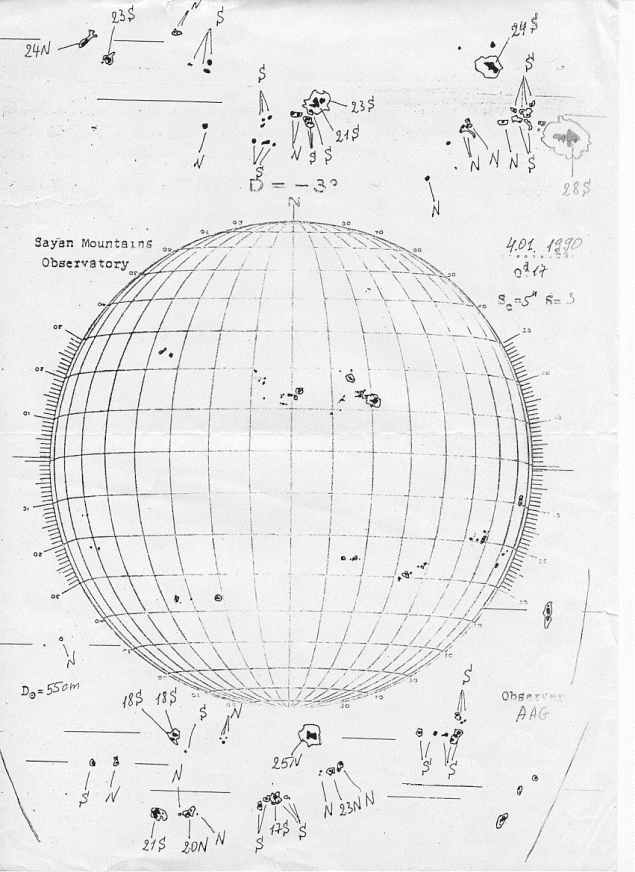 N
23S
S
24N
24S
S
S
23S
21S
N
N S S
S
N N N S
28S
N
D = -3°
N
Sayan Mountains
Observatory
4.01.1990
0ᵈ.17
N
D☉=55cm
18S 18S
S
N
Observer
AAG
S
25N
S S
S N
N
N 23N N
21S 20N N
S 17S S